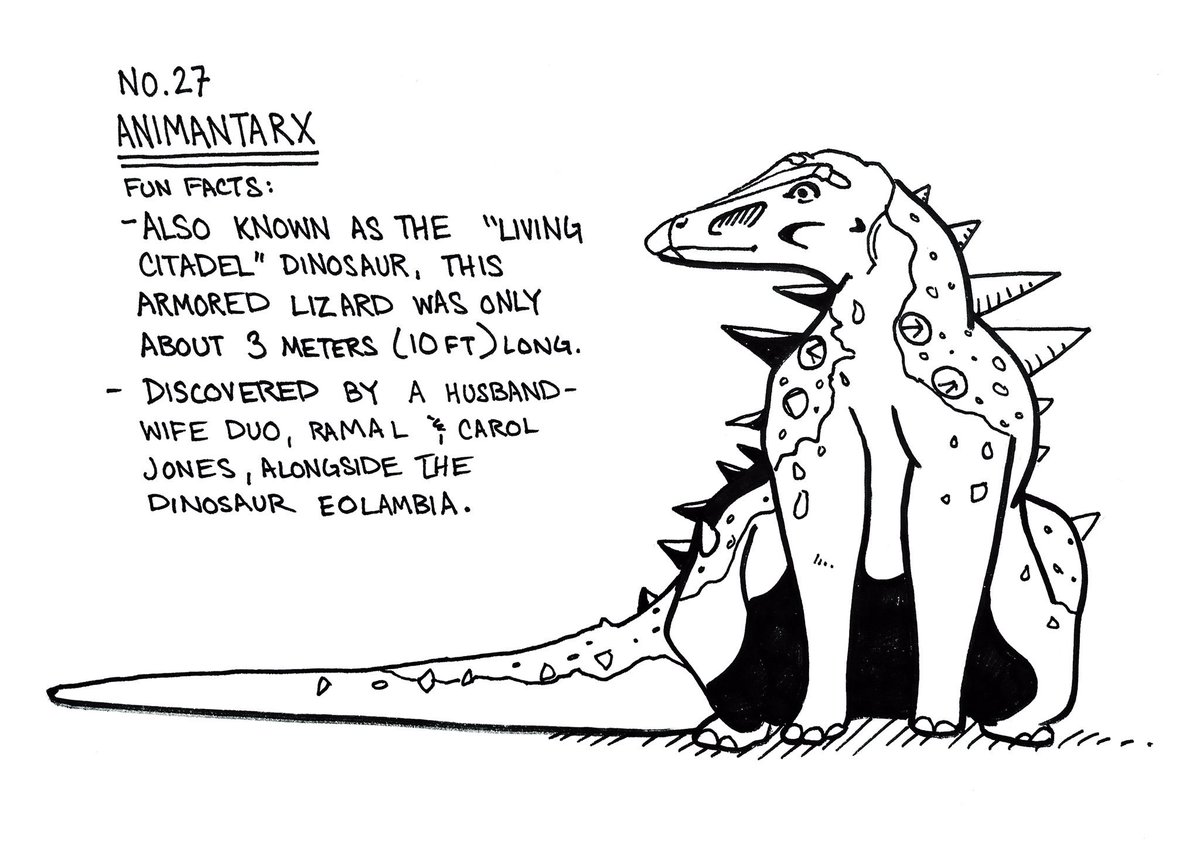 NO.27
ANIMANTARX
FUN FACTS:
-ALSO KNOWN AS THE "LIVING
CITADEL" DINOSAUR, THIS
ARMORED LIZARD WAS ONLY
ABOUT 3 METERS (10 FT) LONG.
- DISCOVERED BY A HUSBAND-
WIFE DUO, RAMAL & CAROL
JONES, ALONGSIDE THE
DINOSAUR EOLAMBIA.